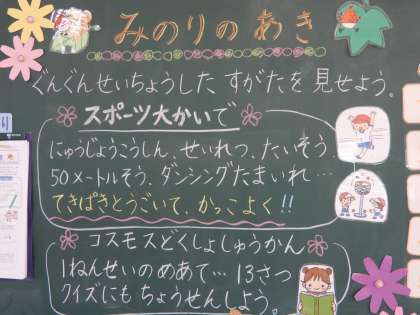 みのりのあき
ぐんぐんせいちょうした すがたを 見せよう。
スポーツ大かいで
にゅうじょうこうしん、せいれつ、たいそう
50メートルそう、ダンシングたまいれ…
てきぱきとうごいて、かっこよく!!
コスモスどくしょしゅうかん
1ねんせいのめあて… 13さつ
クイズにもちょうせんしよう。
り